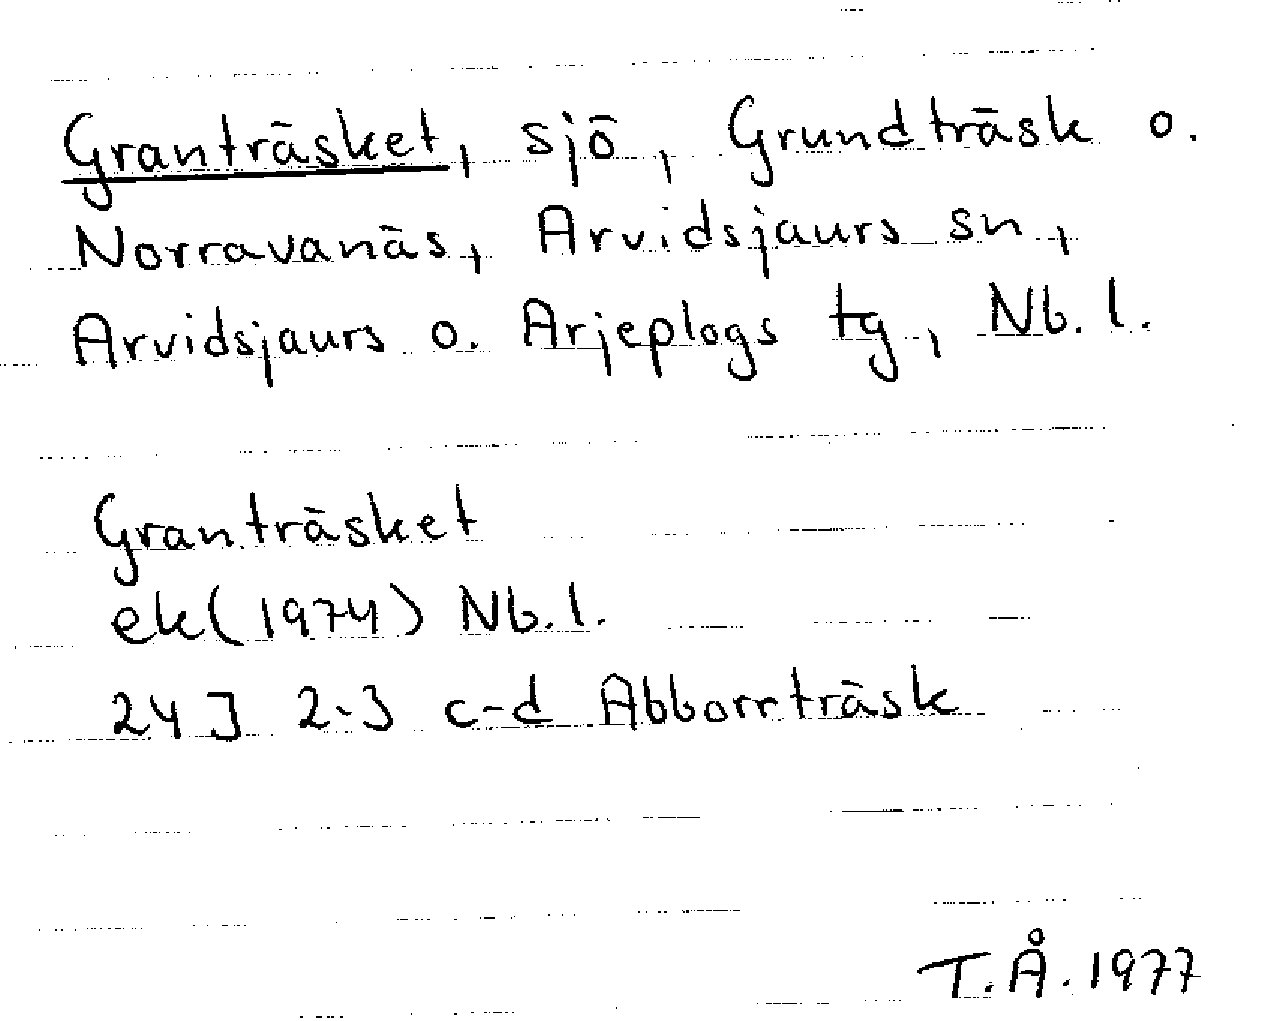 Granträsket, sjö, Grundträsk o.
Norravanäs, Arvidsjaurs sn,
Arvidsjaurs o. Arjeplogs tg, Nb. l.
Granträsket
ek (1974) Nb. l.
24 J 2-3 c-d Abborrträsk
T.Å. 1977